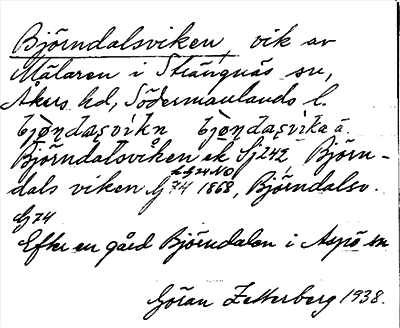 Björndalsviken, vik av
Mälaren i Strängnäs sn,
Åkers hd, Södermanlands l.
Björndalsviken ek Sj 242 Björn-
dals viken G74 1868, Björndalsv.
G74
Efter en gård Björndalen i Aspö sn
Göran Zetterberg 1938.